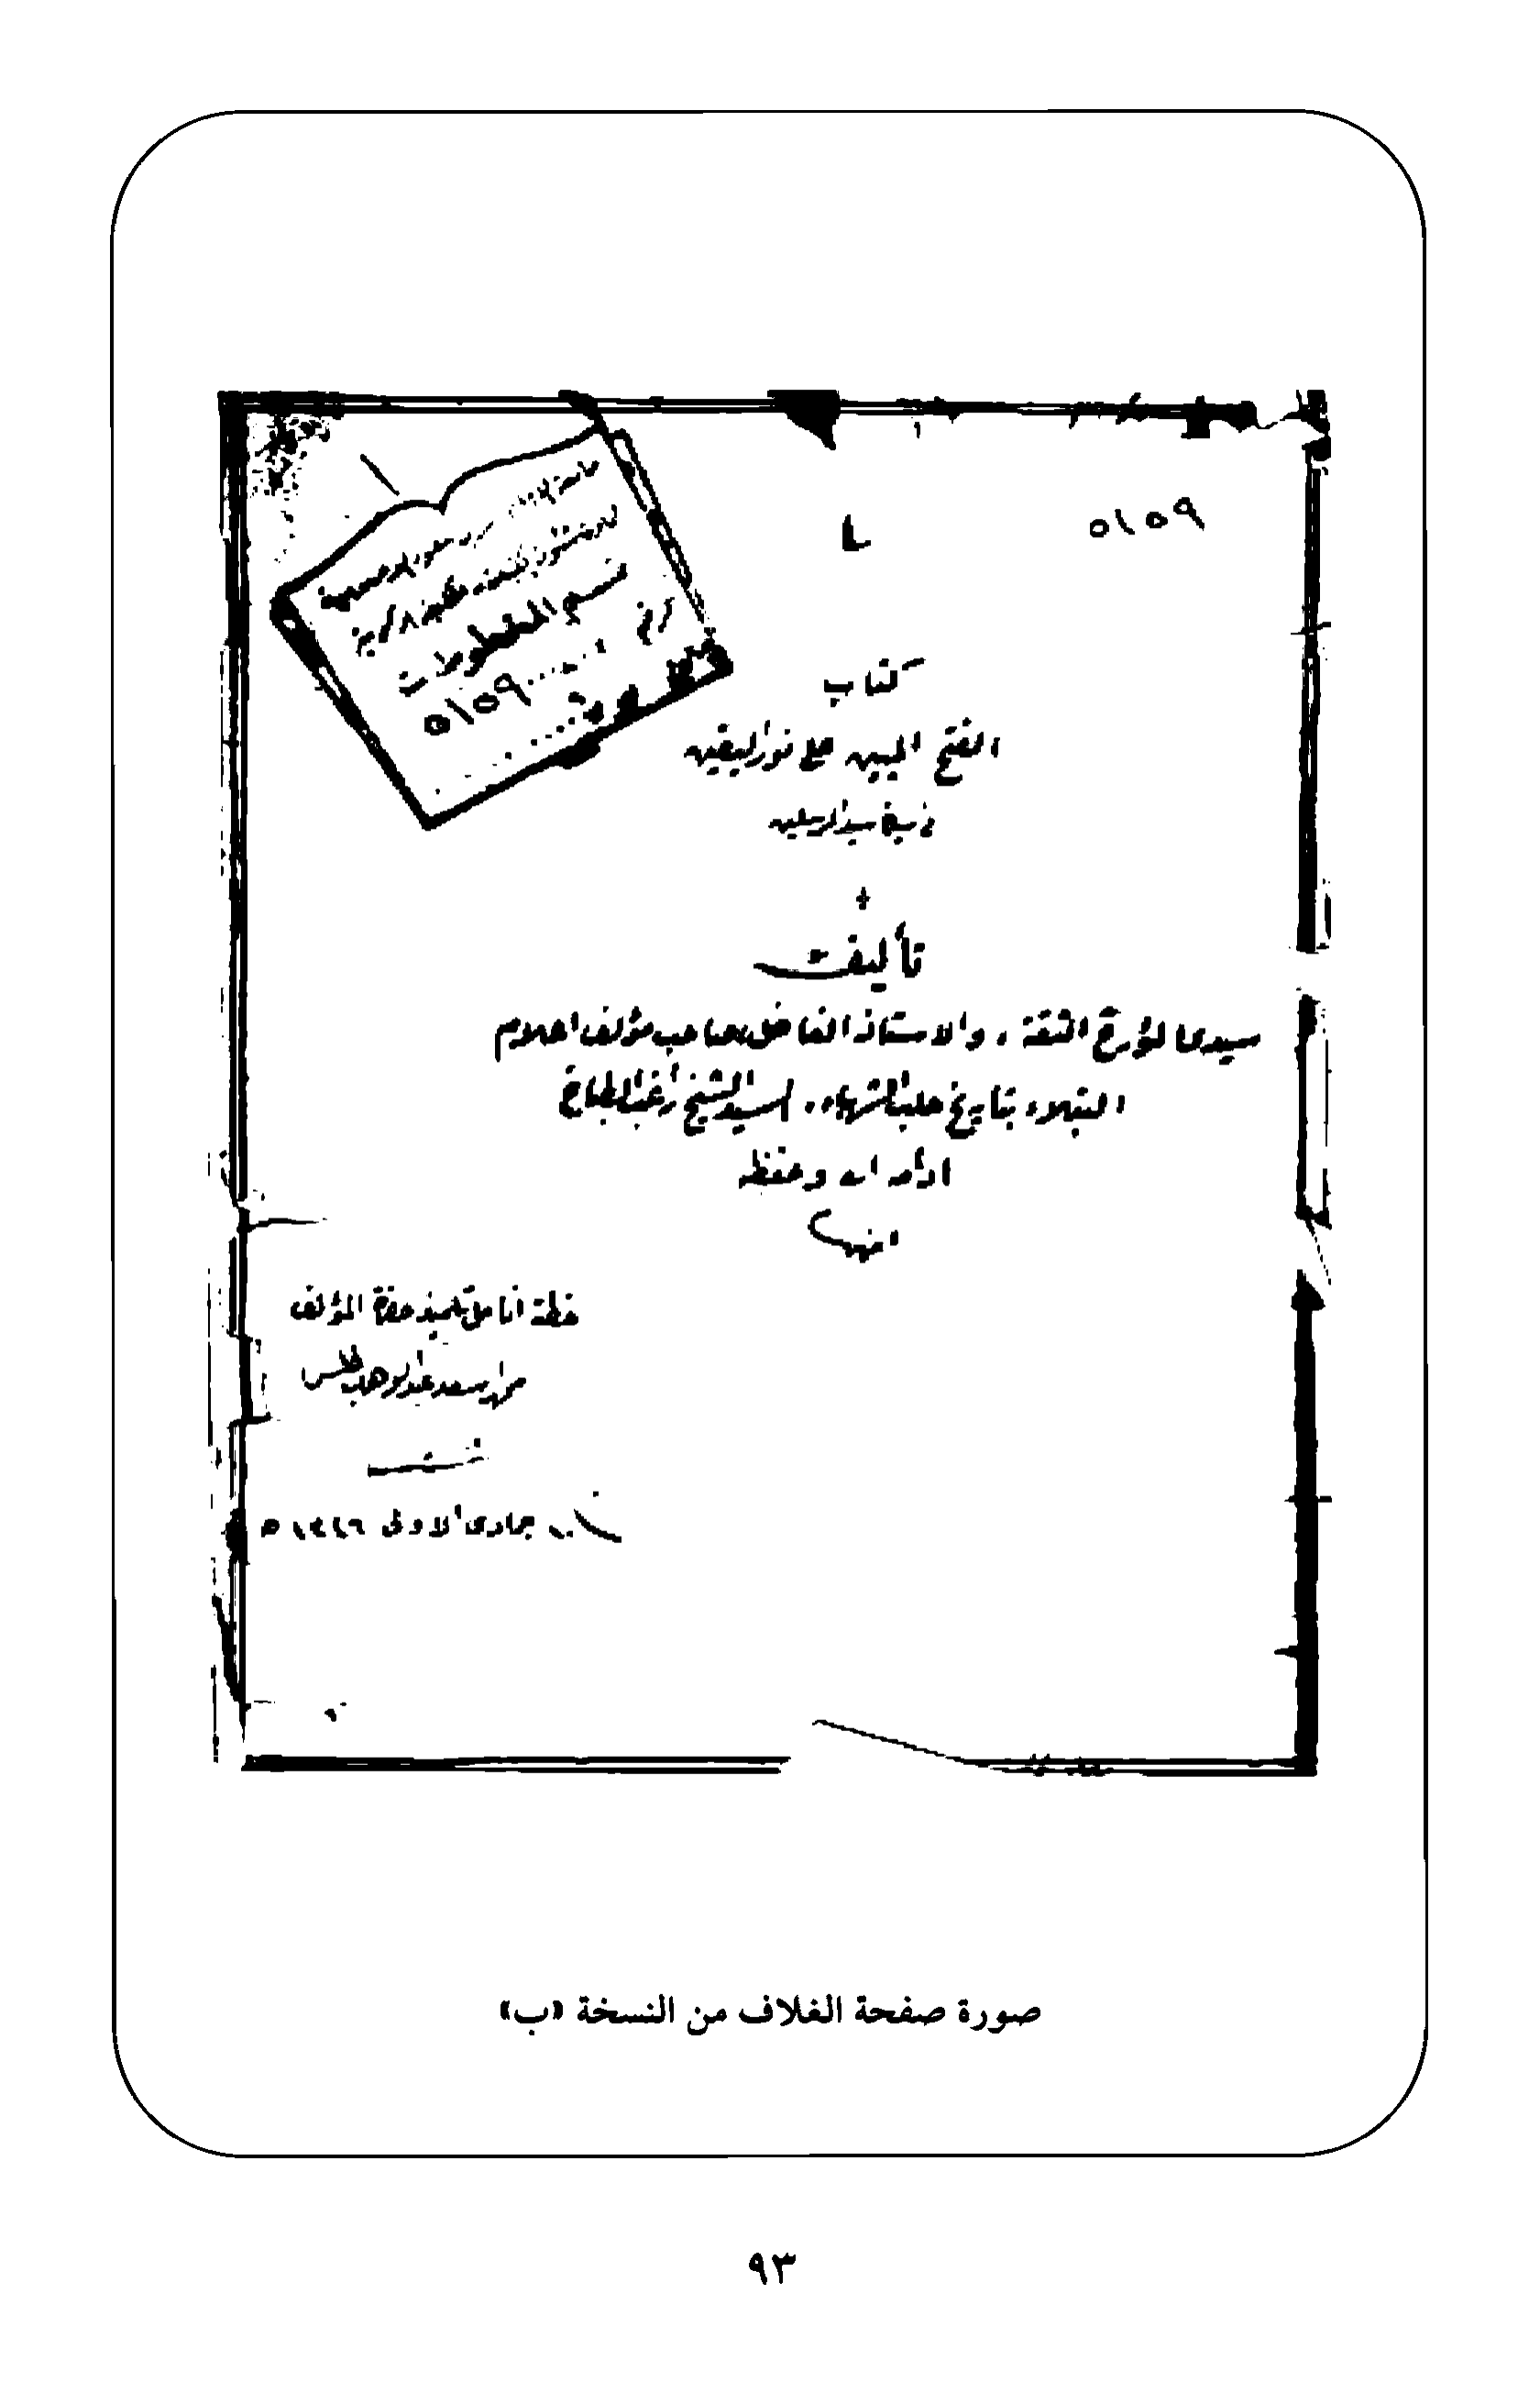 ٥١٥٩
قسم المخطوطات
٥١٥٩
كتاب
الفتح المبين على نور اليقين
في سيرة سيد المرسلين
تأليف
سيدي المؤرخ الثقة ، والاستاذ الفاضل صاحب مؤلف اعلام
النبلاء بتاريخ حلب الشهباء ، السيد الشيخ راغب الطباخ
ادامه الله وحفظه
انتهى
خطه انا تلميذ حضرة المؤلف
محمد اسعد عبد الوهاب طلس
جمادى الاولى
صورة صفحة الغلاف من النسخة «ب»
٩٣